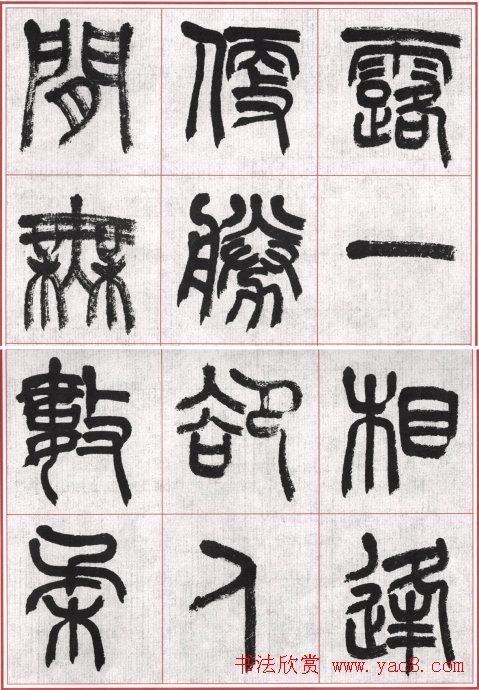 露一相逢
便勝卻人
間無數柔
书法欣赏 www.yac8.com